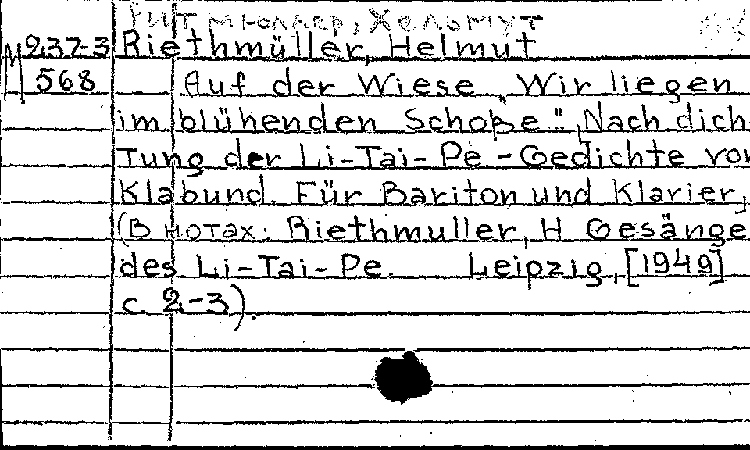 Ритмюллер, Хельмут
М 237-3 Riethmüller, Helmut
568 Auf der Wiese „Wir liegen
im blühenden Schoße." Nach dich-
tung der Li-Tai-Pe-Gedichte von
Klabund. Für Bariton und Klavier,
(В нотах: Riethmuller, H Gesänge
des Li-Tai-Pe. Leipzig, [1949]
с. 2-3).